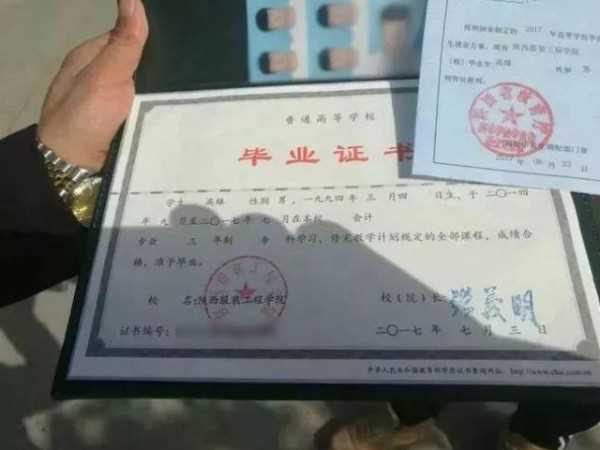 按照国家制定的 2017 年高等学校毕
生就业方案，现有 陕西服装工程学院
(校) 毕业生 高雄 性别 男
陕西省教育厅
2017 年
普通高等学校
毕业证书
学生 高雄 性别 男，一九九四年 三 月 四 日生，于 二〇一四
年 九 月至二〇一七年 七 月在本校 会计
专业 三 年制 专 科学习，修完教学计划规定的全部课程，成绩合
格，准予毕业。
校 名：陕西服装工程学院
校（院）长：
证书编号：
二〇一七年 七 月 三 日
中华人民共和国教育部学历证书查询网址：http://www.chsi.com.cn